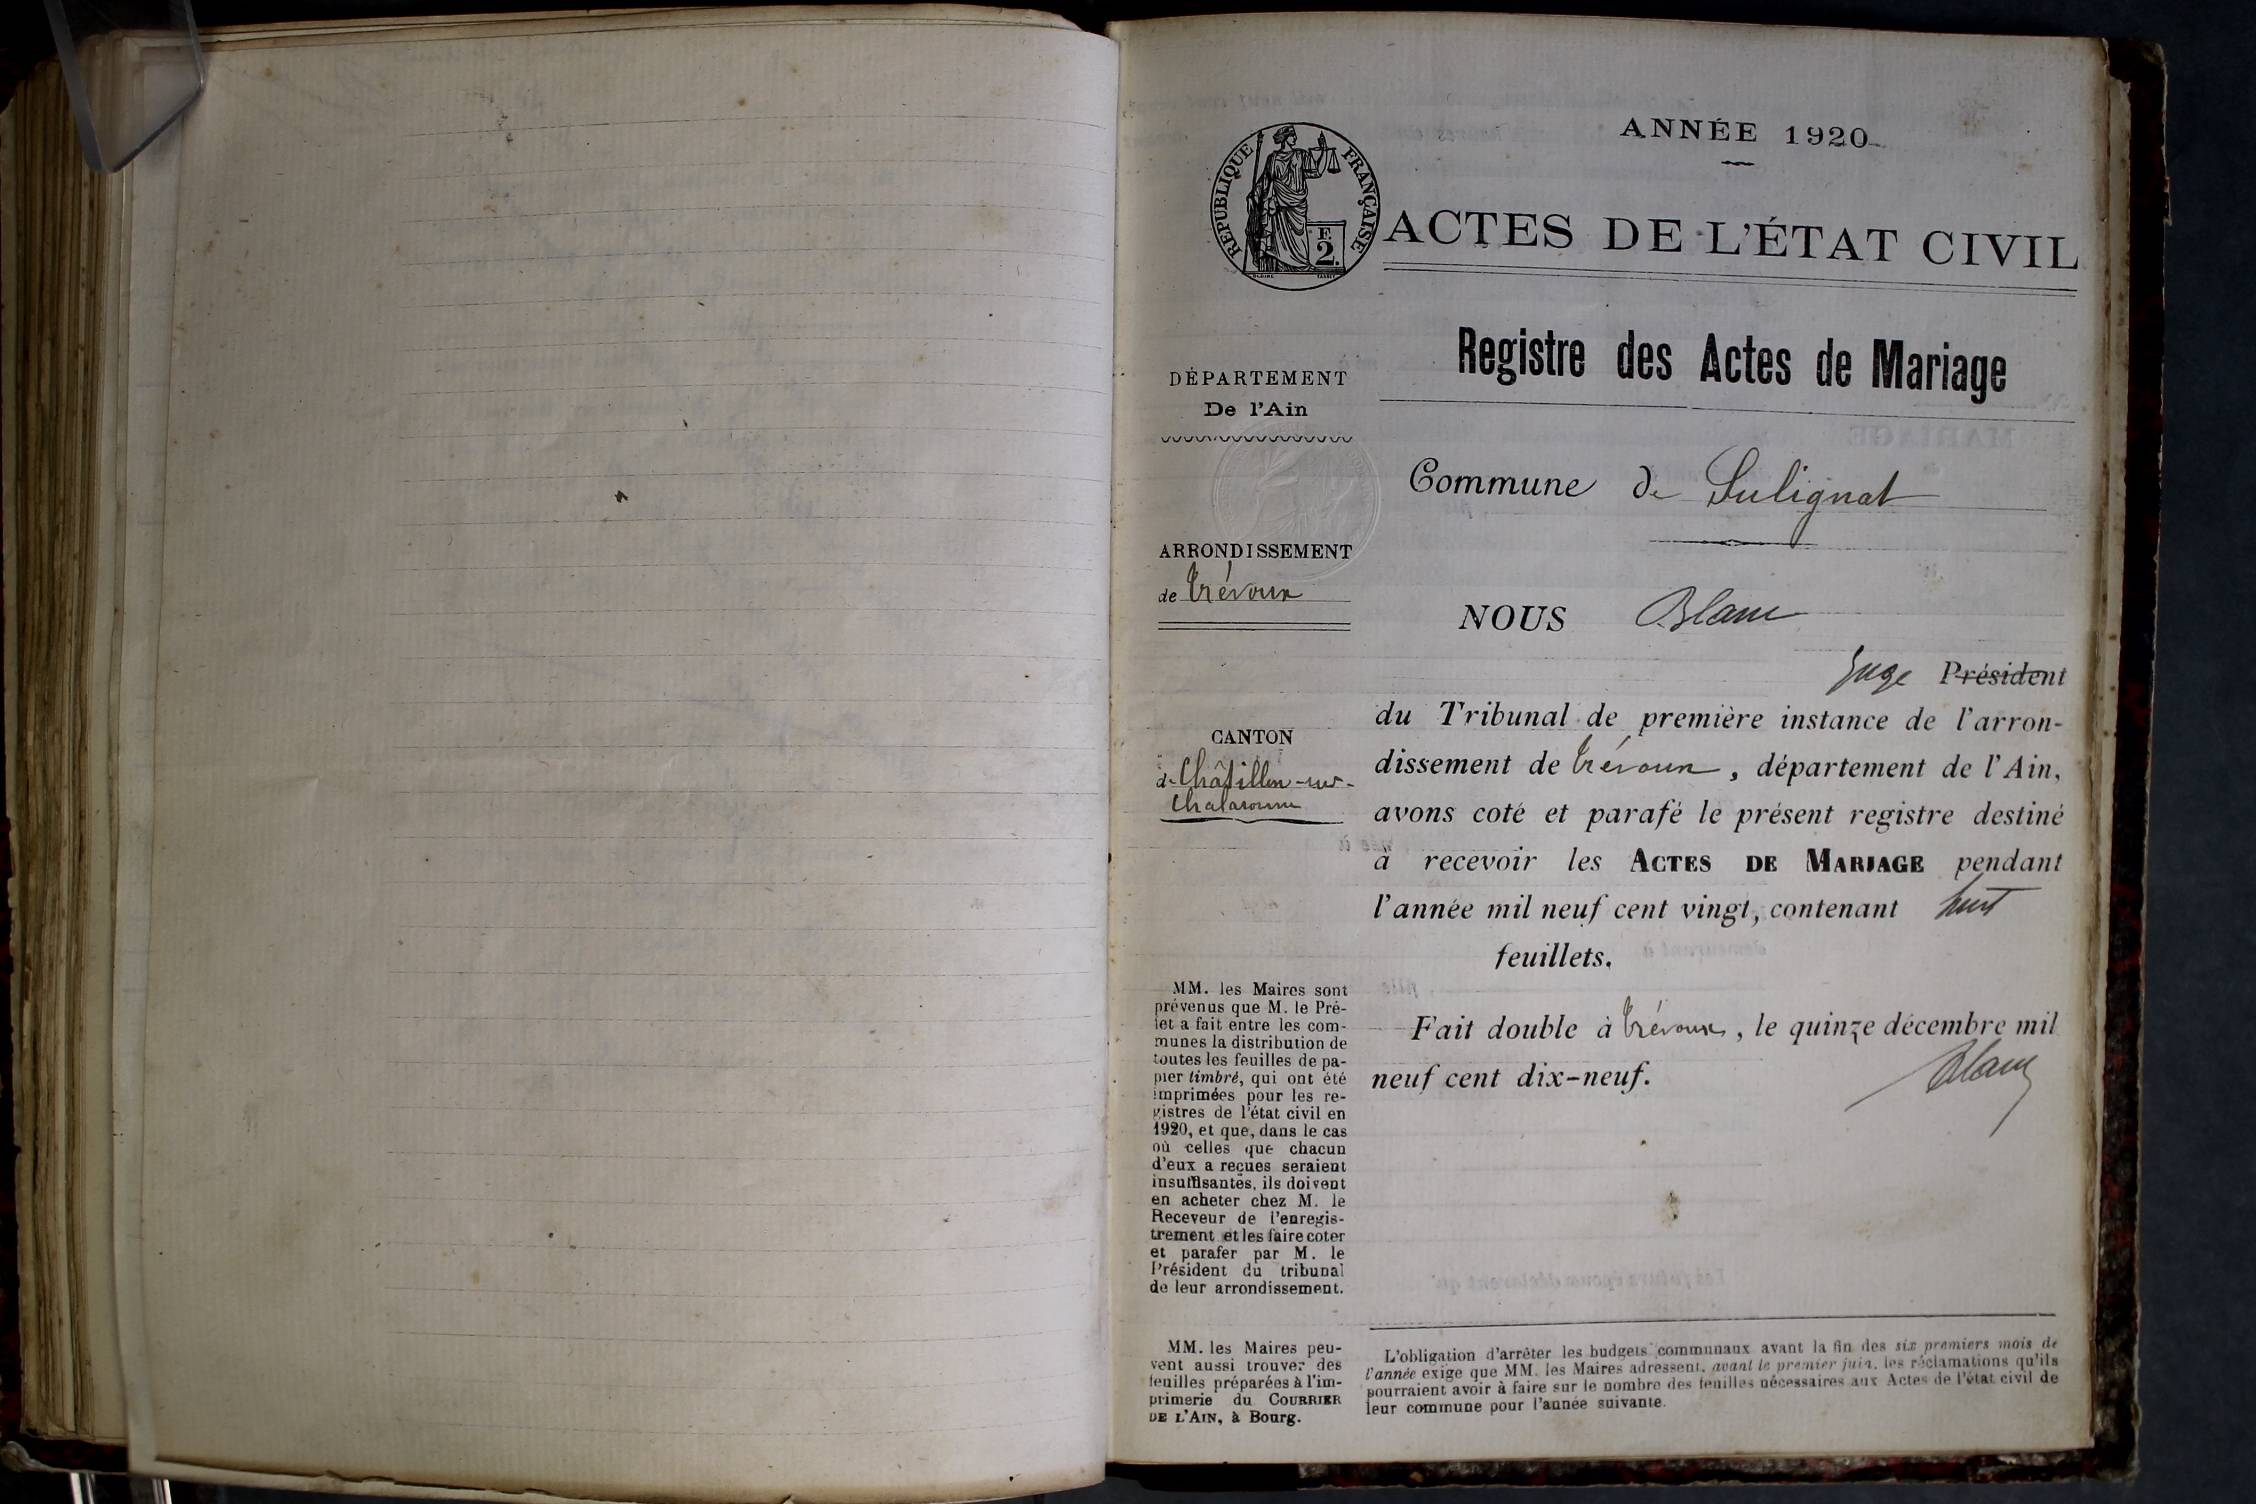 ANNÉE 1920
RÉPUBLIQUE FRANÇAISE
F.
2.
ACTES DE L'ÉTAT CIVIL
Registre des Actes de Mariage
DÉPARTEMENT
De l'Ain
ARRONDISSEMENT
de Trévoux
CANTON
de Châtillon-sur-
Chalaronne
MM. les Maires sont
prévenus que M. le Pré-
fet a fait entre les com-
munes la distribution de
toutes les feuilles de pa-
pier timbré, qui ont été
imprimées pour les re-
gistres de l'état civil en
1920, et que, dans le cas
où celles que chacun
d'eux a reçues seraient
insuffisantes, ils doivent
en acheter chez M. le
Receveur de l'enregis-
trement et les faire coter
et parafer par M. le
Président du tribunal
de leur arrondissement.
MM. les Maires peu-
vent aussi trouver des
feuilles préparées à l'im-
primerie du COURRIER
DE L'AIN, à Bourg.
Commune de Sulignat
NOUS Blanc
Juge Président
du Tribunal de première instance de l'arron-
dissement de Trévoux, département de l'Ain,
avons coté et parafé le présent registre destiné
à recevoir les ACTES DE MARIAGE pendant
l'année mil neuf cent vingt, contenant huit
feuillets.
Fait double à Trévoux, le quinze décembre mil
neuf cent dix-neuf.
Blanc
L'obligation d'arrêter les budgets communaux avant la fin des six premiers mois de
l'année exige que MM. les Maires adressent, avant le premier juin, les réclamations qu'ils
pourraient avoir à faire sur le nombre des feuilles nécessaires aux Actes de l'état civil de
leur commune pour l'année suivante.